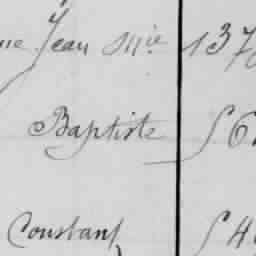 ue Jean Mie 137
Baptiste 56
Constant 54